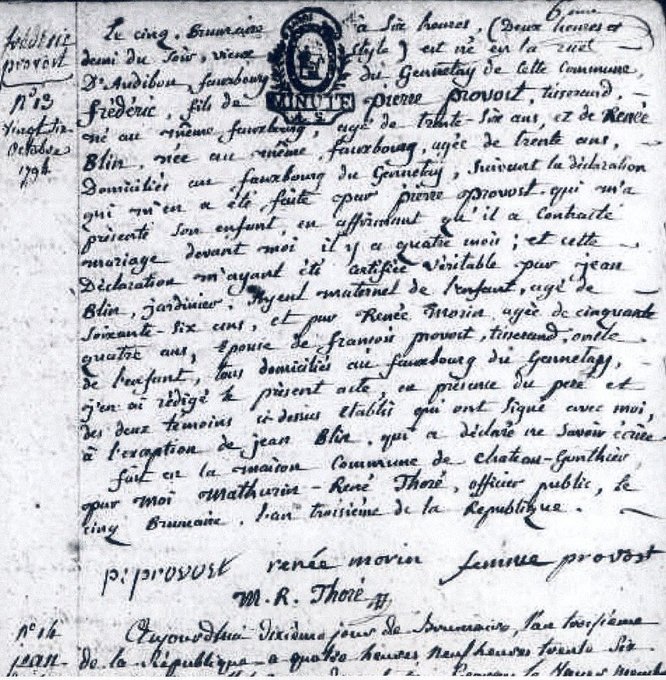 6eme
frédéric
provost
N° 13
Vingt six
Octobre
1794
Le cinq, Brumaire à Six heures, (Deux heures et
demi du Soir, vieux style) est né en la rue
D'Audibon fauxbourg du Gennetay de cette Commune,
MINUTE
frédéric, fils de pierre provost, tisserand,
né au même fauxbourg, agé de trente-six ans, et de Renée
Blin, née au même fauxbourg, agée de trente ans,
Domiciliés au fauxbourg du Gennetay, Suivant la déclaration
qui m'en a été faite par pierre provost qui m'a
présenté Son enfant, en affirmant qu'il a Contracté
mariage devant moi il y a quatre mois ; et cette
Déclaration m'ayant été attestée véritable par jean
Blin, jardinier, ayeul maternel de l'enfant, agé de
Soixante-six ans, et par Renée Morin agée de cinquante
quatre ans, épouse de fransois provost, tisserand, oncle
de l'enfant, tous domiciliés au fauxbourg du Gennetay,
j'en ai rédigé le présent acte, en présence du pere et
des deux temoins ci-dessus etablis qui ont signé avec moi,
à l'exception de jean Blin, qui a déclaré ne Savoir écrire
fait en la maison Commune de Chateau-Gonthier,
par moi Mathurin-René Thoré, officier public, le
cinq Brumaire, l'an troisième de la République.
p. provost renée morin femme provost
M. R. Thoré
N° 14
jean
Aujourdhui dixième jour de Brumaire, l'an troisième
de la République a quatre heures neuf heures trente Six